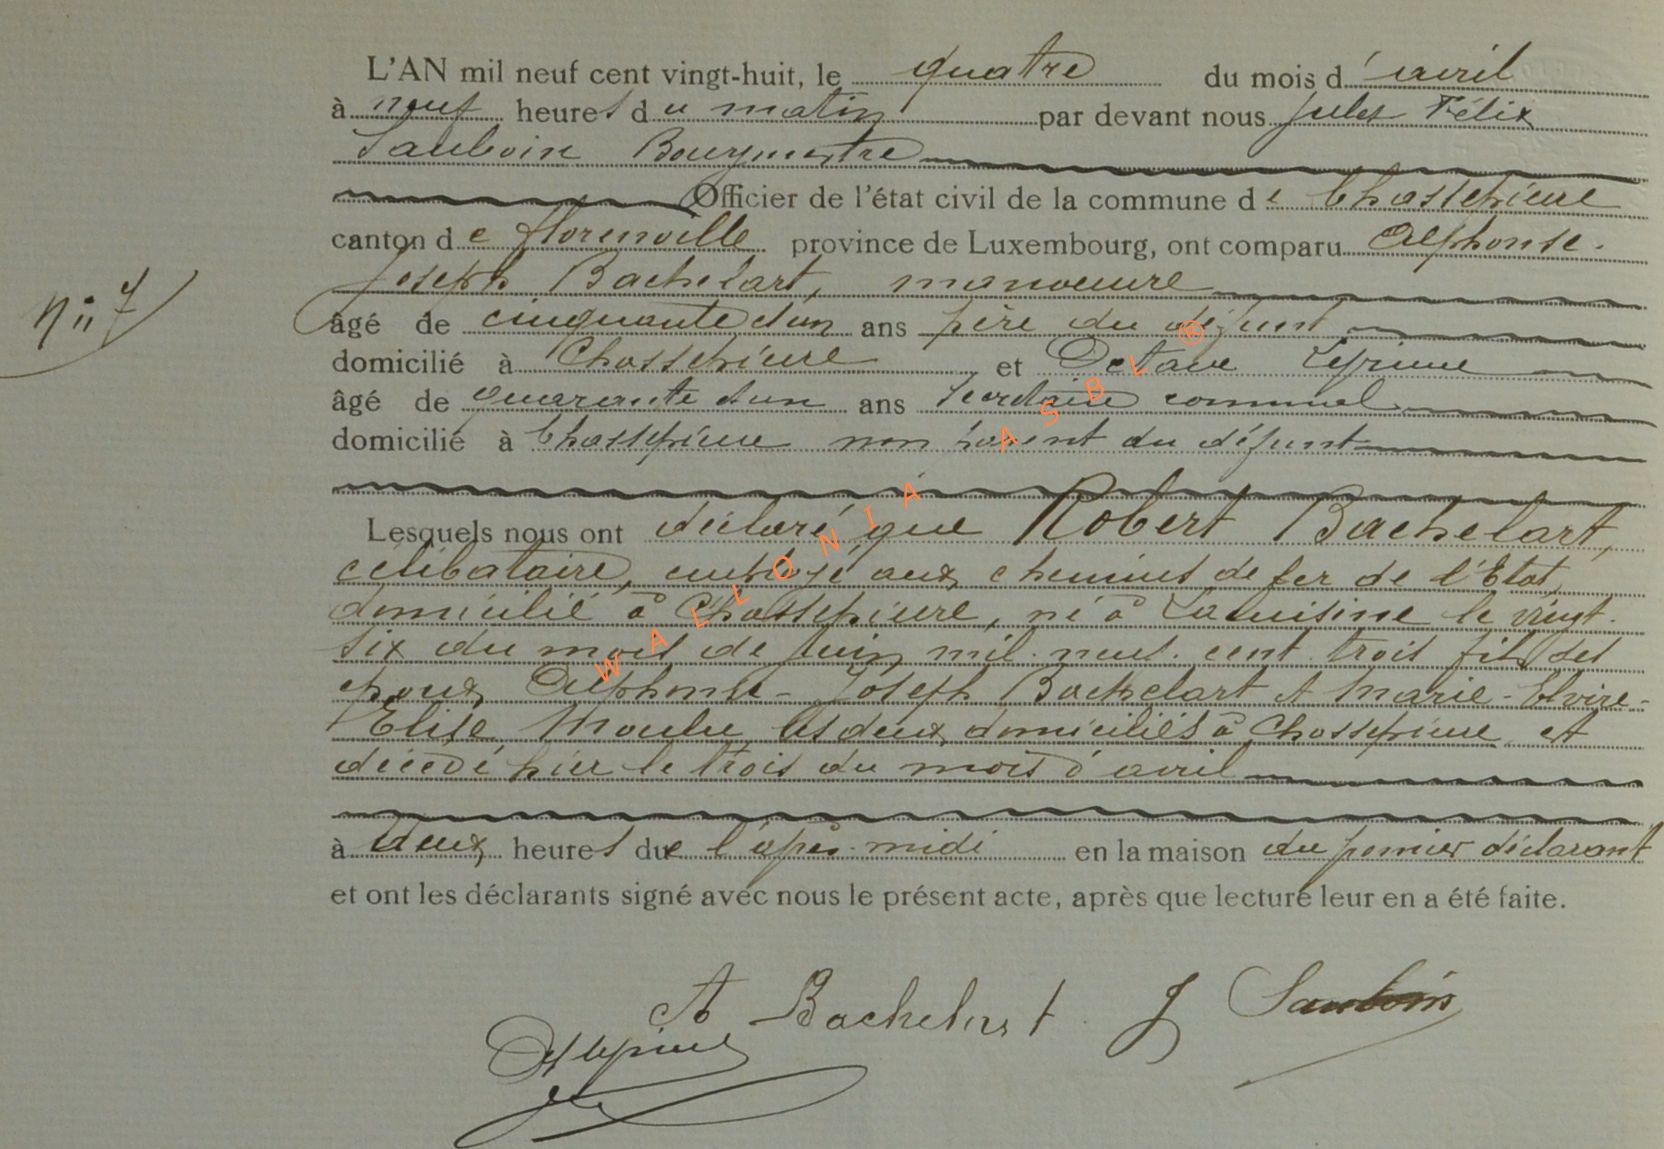 L'AN mil neuf cent vingt-huit, le quatre du mois d'avril
à neuf heures du matin par devant nous Jules Félix
Sauboin Bourgmestre
Officier de l'état civil de la commune de Chassepierre
canton de Florenville province de Luxembourg, ont comparu Alphonse-
Joseph Bachelart, manoeuvre
n° 7
âgé de cinquante et un ans père du défunt
domicilié à Chassepierre et Octave
âgé de quarante et un ans secrétaire communal
domicilié à Chassepierre non parent du défunt
Lesquels nous ont déclaré que Robert Bachelart,
célibataire, employé aux chemins de fer de l'Etat,
domicilié à Chassepierre, né à Lacuisine le vingt-
six du mois de juin mil neuf cent trois fils des
époux Alphonse-Joseph Bachelart et Marie-Elvire-
Elise les deux domiciliés à Chassepierre est
décédé hier le trois du mois d'avril
à deux heures de l'après-midi en la maison du premier déclarant
et ont les déclarants signé avec nous le présent acte, après que lecture leur en a été faite.
A Bachelart J Sauboin
WALLONIA ASBL ®